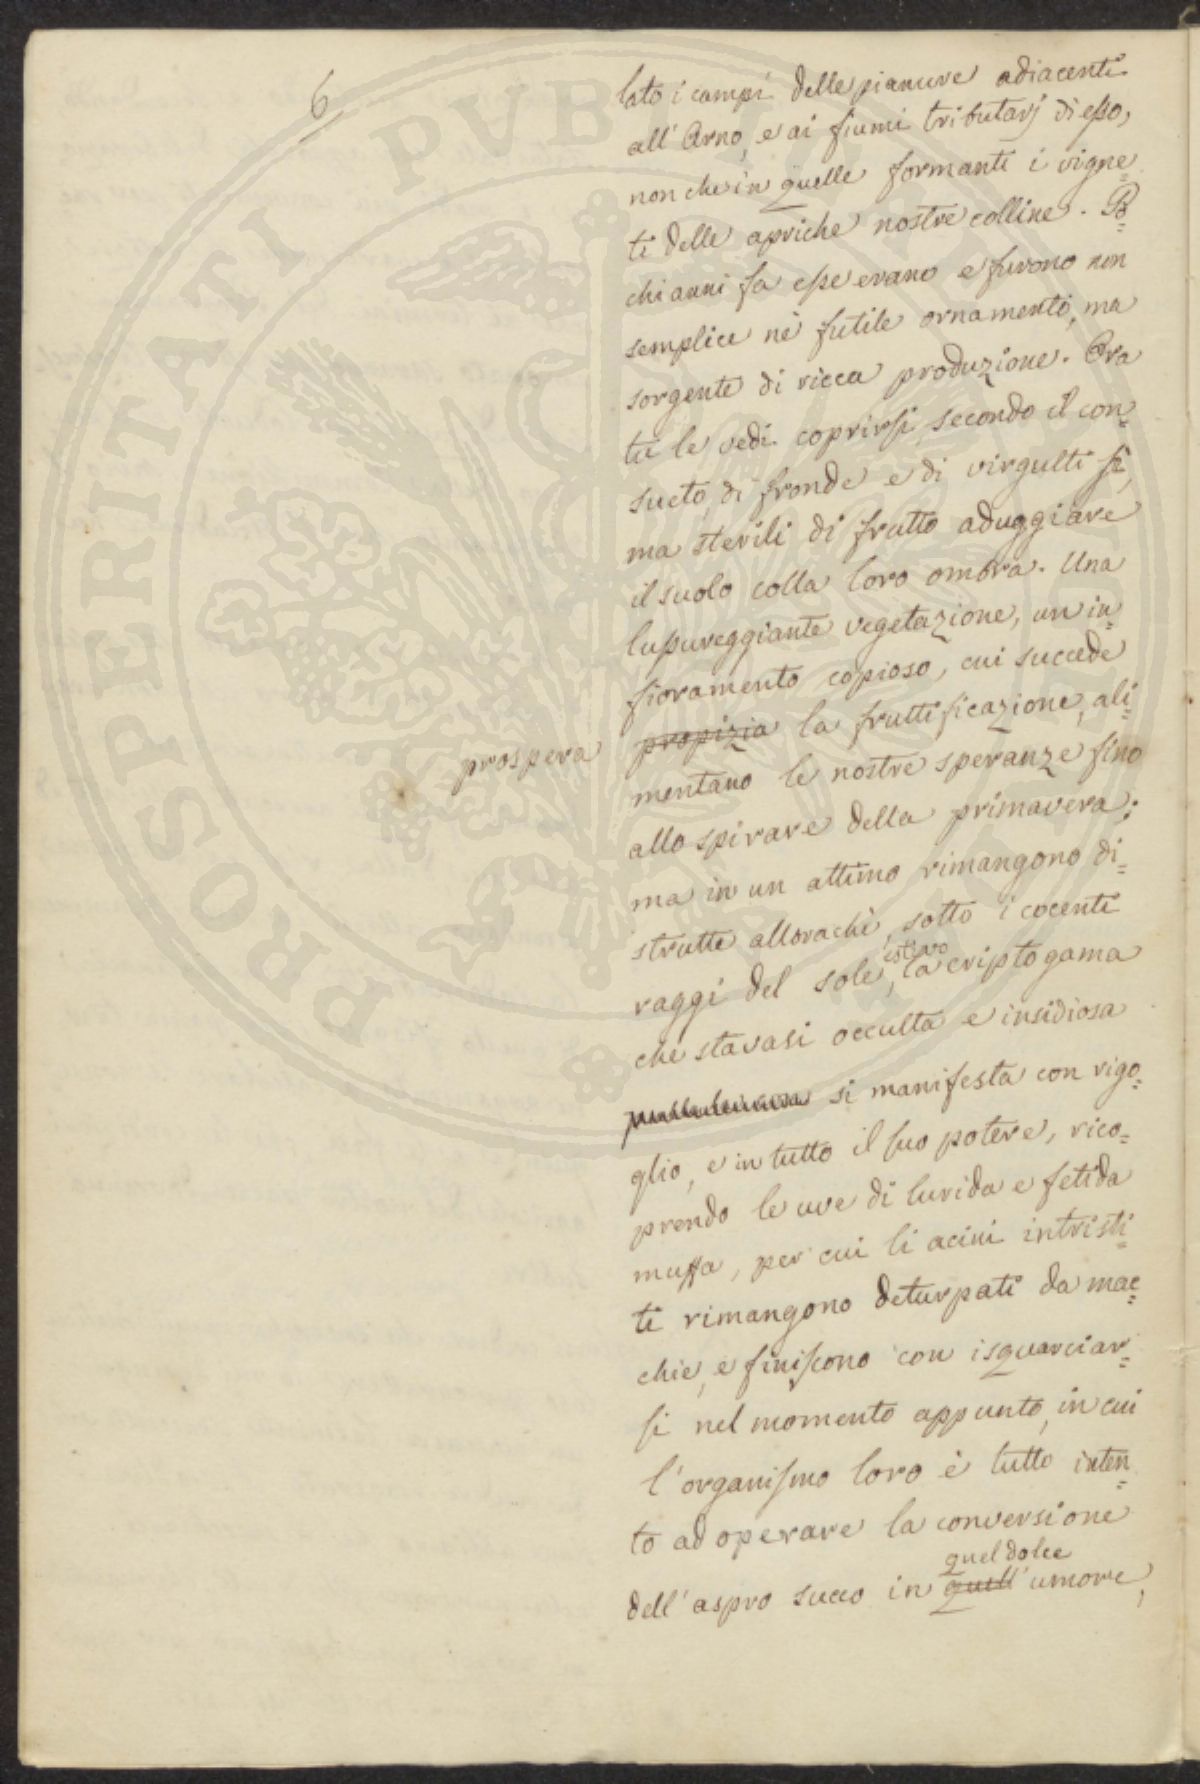 6
lato i campi delle pianure adiacenti
all'Arno, e ai fiumi tributarj di esso,
non che in quelle formanti i vigne=
ti delle apriche nostre colline. Po=
chi anni fa esse erano e furono non
semplice nè futile ornamento, ma
sorgente di ricca produzione. Ora
tu le vedi coprirsi, secondo il con=
sueto, di fronde e di virgulti sì,
ma sterili di frutto aduggiare
il suolo colla loro ombra. Una
lussureggiante vegetazione, un in=
fioramento copioso, cui succede
prospera propizia la fruttificazione, ali=
mentano le nostre speranze fino
allo spirare della primavera;
ma in un attimo rimangono di=
strutte allorachè, sotto i cocenti
raggi del sole estivo, la criptogama
che stavasi occulta e insidiosa
si manifesta con rigo=
glio, e in tutto il suo potere, rico=
prendo le uve di lurida e fetida
muffa, per cui li acini intristi=
ti rimangono deturpati da mac=
chie, e finiscono con isquarciar=
si nel momento appunto, in cui
l'organismo loro è tutto inten=
to ad operare la conversione
quel dolce
dell'aspro succo in quell' umore,
PROSPERITATI PVBLICAE